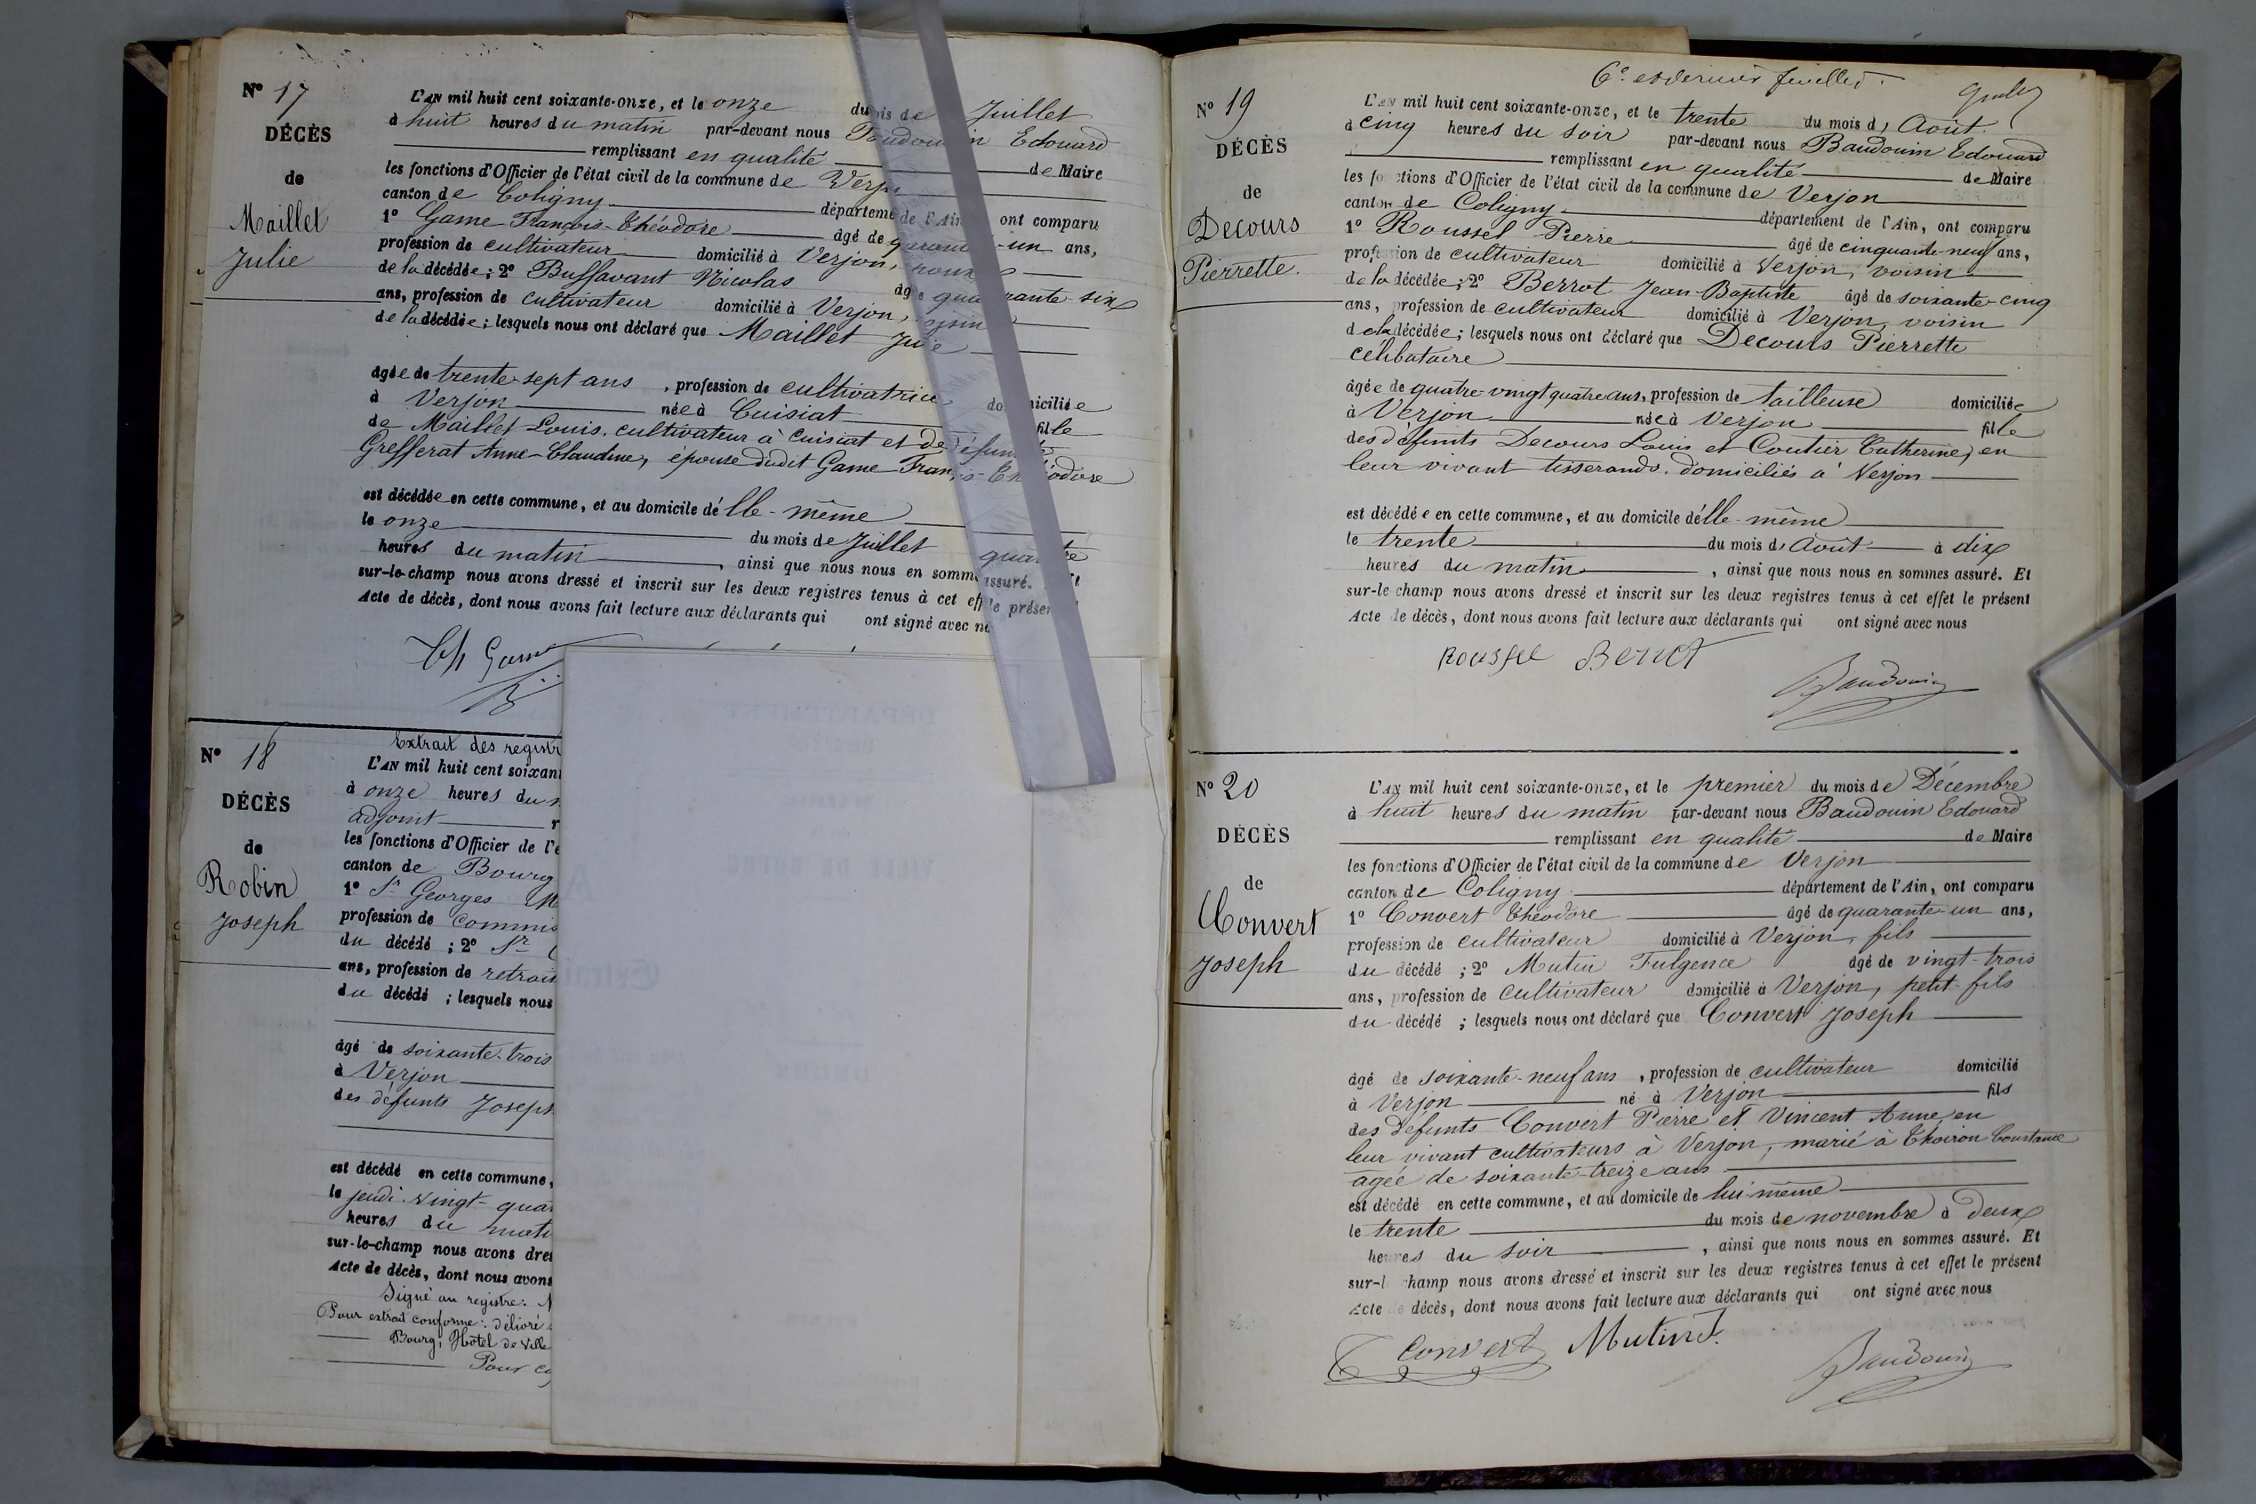 N° 17
DÉCÈS
de
Maillet
Julie
L'AN mil huit cent soixante-onze, et le onze du mois de Juillet
à huit heures du matin par-devant nous Baudouin Edouard
remplissant en qualité de Maire
les fonctions d'Officier de l'état civil de la commune de Verjon
canton de Coligny département de l'Ain ont comparu
1° Game François-Théodore âgé de quarante-un ans,
profession de cultivateur domicilié à Verjon, époux
de la décédée; 2° Buffavant Nicolas âgé de quarante-six
ans, profession de cultivateur domicilié à Verjon, voisin
de la décédée; lesquels nous ont déclaré que Maillet Julie
âgée de trente-sept ans, profession de cultivatrice domiciliée
à Verjon née à Cuisiat fille
de Maillet Louis, cultivateur à Cuisiat et de défunte
Grefferat Anne-Claudine, épouse dudit Game François-Théodore
est décédée en cette commune, et au domicile d'elle-même
le onze du mois de Juillet quatre
heures du matin, ainsi que nous nous en sommes assuré. Et
sur-le-champ nous avons dressé et inscrit sur les deux registres tenus à cet effet le présent
Acte de décès, dont nous avons fait lecture aux déclarants qui ont signé avec no
Th Game
N° 18
DÉCÈS
de
Robin
Joseph
Extrait des registr
L'AN mil huit cent soixant
à onze heures du
adjoint
les fonctions d'Officier de l'é
canton de Bourg
1° Sr Georges
profession de commis
du décédé; 2° Sr
ans, profession de retrait
du décédé; lesquels nous
âgé de soixante-trois
à Verjon
des défunts Joseph
est décédé en cette commune,
le jeudi vingt-quat
heures du mati
sur-le-champ nous avons dres
Acte de décès, dont nous avons
Signé au registre:
Pour extrait conforme: délivré
Bourg, Hôtel de Ville
Pour
6e et dernier feuillet.
N° 19
DÉCÈS
de
Decours
Pierrette.
L'AN mil huit cent soixante-onze, et le trente du mois d'Août
à cinq heures du soir par-devant nous Baudouin Edouard
remplissant en qualité de Maire
les fonctions d'Officier de l'état civil de la commune de Verjon
canton de Coligny département de l'Ain, ont comparu
1° Roussel Pierre âgé de cinquante-neuf ans,
profession de cultivateur domicilié à Verjon, voisin
de la décédée; 2° Berrot Jean-Baptiste âgé de soixante-cinq
ans, profession de cultivateur domicilié à Verjon, voisin
de la décédée; lesquels nous ont déclaré que Decours Pierrette
célibataire
âgée de quatre-vingt quatre ans, profession de tailleuse domiciliée
à Verjon née à Verjon fille
des défunts Decours Louis et Coutier Catherine, en
leur vivant tisserands domiciliés à Verjon
est décédée en cette commune, et au domicile d'elle-même
le trente du mois d'Août à dix
heures du matin, ainsi que nous nous en sommes assuré. Et
sur-le champ nous avons dressé et inscrit sur les deux registres tenus à cet effet le présent
Acte de décès, dont nous avons fait lecture aux déclarants qui ont signé avec nous
Roussel Berrot
Baudouin
N° 20
DÉCÈS
de
Convert
Joseph
L'AN mil huit cent soixante-onze, et le premier du mois de Décembre
à huit heures du matin par-devant nous Baudouin Edouard
remplissant en qualité de Maire
les fonctions d'Officier de l'état civil de la commune de Verjon
canton de Coligny département de l'Ain, ont comparu
1° Convert Théodore âgé de quarante-un ans,
profession de cultivateur domicilié à Verjon, fils
du décédé; 2° Mutin Fulgence âgé de vingt-trois
ans, profession de cultivateur domicilié à Verjon, petit-fils
du décédé; lesquels nous ont déclaré que Convert Joseph
âgé de soixante-neuf ans, profession de cultivateur domicilié
à Verjon né à Verjon fils
des défunts Convert Pierre et Vincent Anne, en
leur vivant cultivateurs à Verjon, marié à Thoiron Constance
âgée de soixante-treize ans
est décédé en cette commune, et au domicile de lui-même
le trente du mois de novembre à deux
heures du soir, ainsi que nous nous en sommes assuré. Et
sur-le champ nous avons dressé et inscrit sur les deux registres tenus à cet effet le présent
Acte de décès, dont nous avons fait lecture aux déclarants qui ont signé avec nous
Convert Mutin F.
Baudouin